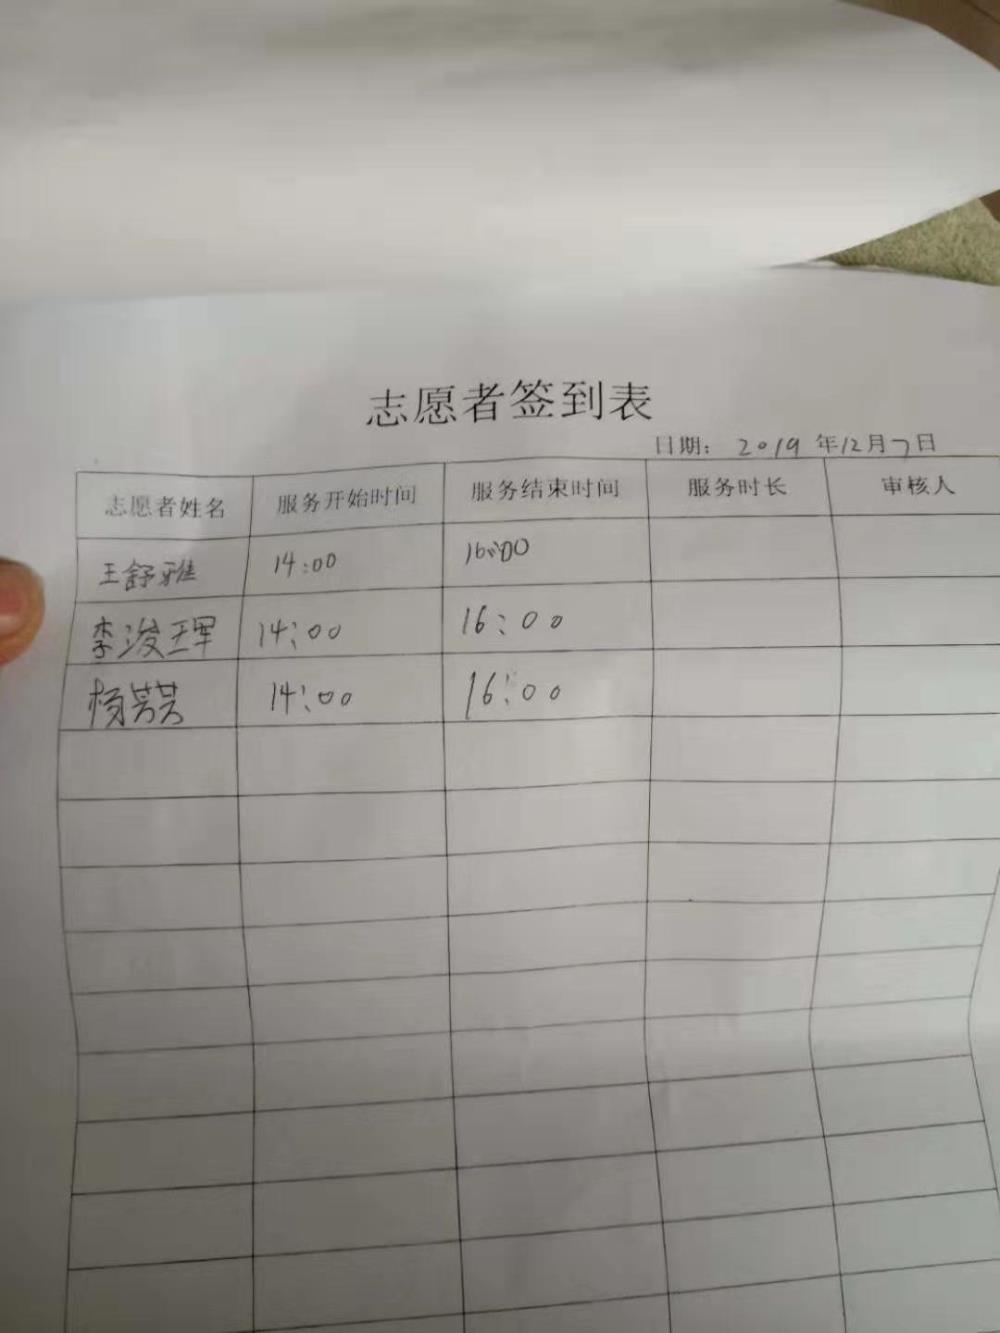 志愿者签到表
日期： 2019 年12月7日
志愿者姓名 服务开始时间 服务结束时间 服务时长 审核人
王舒雅 14:00 16:00
李浚珲 14:00 16:00
杨芸芸 14:00 16:00